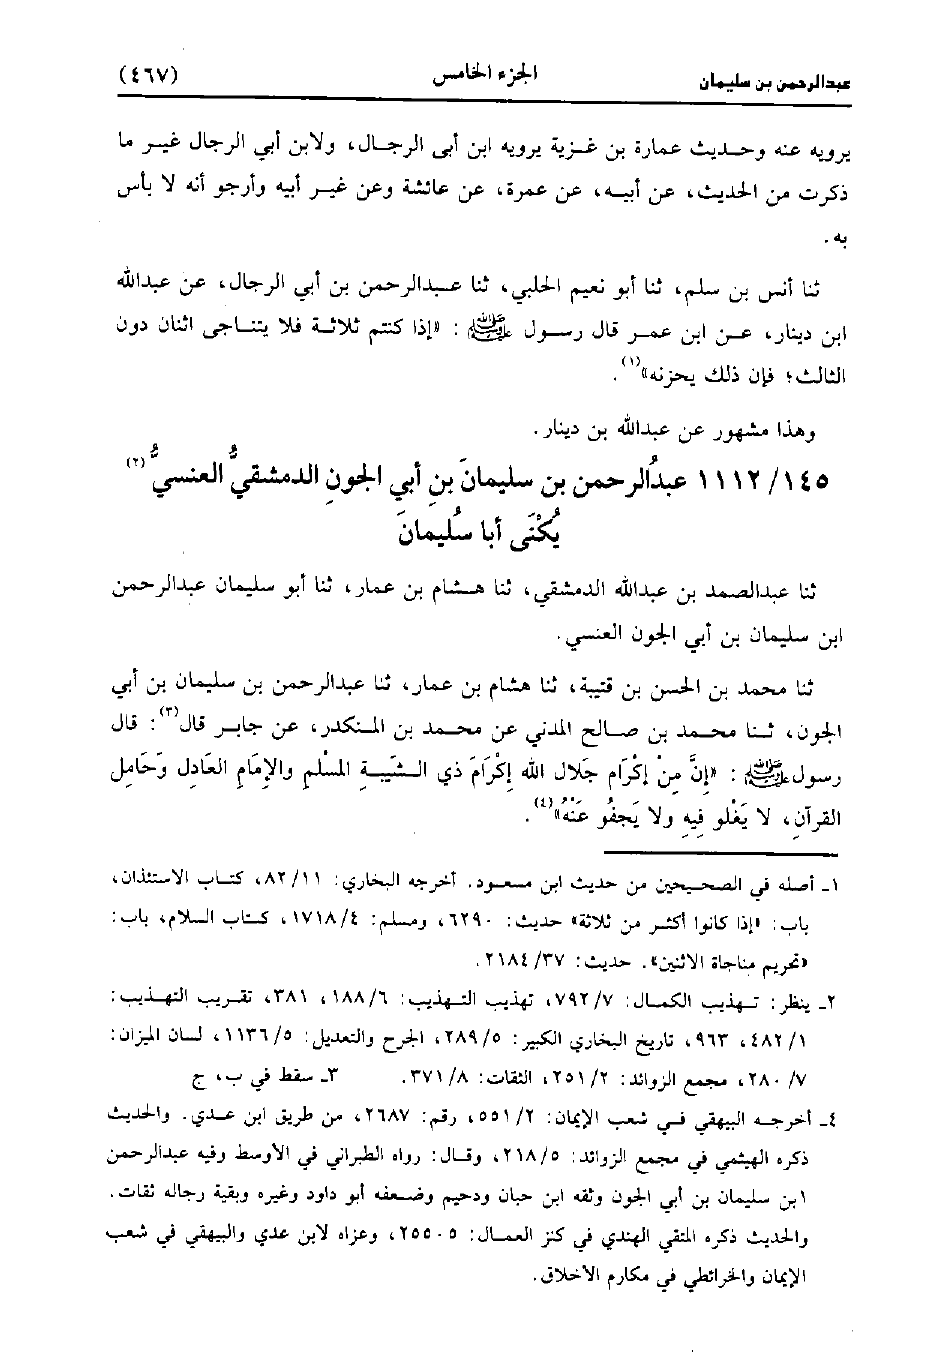 عبدالرحمن بن سليمان الجزء الخامس (٤٦٧)
يرويه عنه وحديث عمارة بن غزية يرويه ابن أبى الرجال، ولابن أبي الرجال غير ما
ذكرت من الحديث، عن أبيه، عن عمرة، عن عائشة وعن غير أبيه وأرجو أنه لا بأس
به .
ثنا أنس بن سلم، ثنا أبو نعيم الحلبي، ثنا عبدالرحمن بن أبي الرجال، عن عبدالله
ابن دينار، عن ابن عمر قال رسول ﷺ : «إذا كنتم ثلاثة فلا يتناجى اثنان دون
الثالث؛ فإن ذلك يحزنه»(١) .
وهذا مشهور عن عبدالله بن دينار .
١١١٢/١٤٥ عبدُالرحمن بن سليمانَ بنِ أبي الجونِ الدمشقيُّ العنسيُّ(٢)
يُكْنَى أبا سُليمانَ
ثنا عبدالصمد بن عبدالله الدمشقي، ثنا هشام بن عمار، ثنا أبو سليمان عبدالرحمن
ابن سليمان بن أبي الجون العنسي .
ثنا محمد بن الحسن بن قتيبة، ثنا هشام بن عمار، ثنا عبدالرحمن بن سليمان بن أبي
الجون، ثنا محمد بن صالح المدني عن محمد بن المنكدر، عن جابر قال(٣) : قال
رسول ﷺ : «إنَّ مِنْ إكْرَامِ جَلال الله إكْرَامَ ذي الشَّيبَةِ المُسْلمِ والإمَامِ العَادلِ وحَاملِ
القرآنِ، لا يَغْلو فيهِ ولا يَجفُو عَنْهُ»(٤) .
١ـ أصله في الصحيحين من حديث ابن مسعود. أخرجه البخاري: ٨٢/١١، كتاب الاستئذان،
باب: «إذا كانوا أكثر من ثلاثة» حديث: ٦٢٩٠، ومسلم: ١٧١٨/٤، كتاب السلام، باب:
«تحريم مناجاة الاثنين». حديث: ٢١٨٤/٣٧.
٢ـ ينظر: تهذيب الكمال: ٧٩٢/٧، تهذيب التهذيب: ١٨٨/٦، ٣٨١، تقريب التهذيب:
٤٨٢/١، ٩٦٣، تاريخ البخاري الكبير: ٢٨٩/٥، الجرح والتعديل: ١١٣٦/٥، لسان الميزان:
٢٨٠/٧، مجمع الزوائد: ٢٥١/٢، الثقات: ٣٧١/٨. ٣ـ سقط في ب، ج
٤ـ أخرجه البيهقي في شعب الإيمان: ٥٥١/٢، رقم: ٢٦٨٧، من طريق ابن عدي. والحديث
ذكره الهيثمي في مجمع الزوائد: ٢١٨/٥، وقال: رواه الطبراني في الأوسط وفيه عبدالرحمن
ابن سليمان بن أبي الجون وثقه ابن حبان ودحيم وضعفه أبو داود وغيره وبقية رجاله ثقات.
والحديث ذكره المتقي الهندي في كنز العمال: ٢٥٥٠٥، وعزاه لابن عدي والبيهقي في شعب
الإيمان والخرائطي في مكارم الأخلاق.